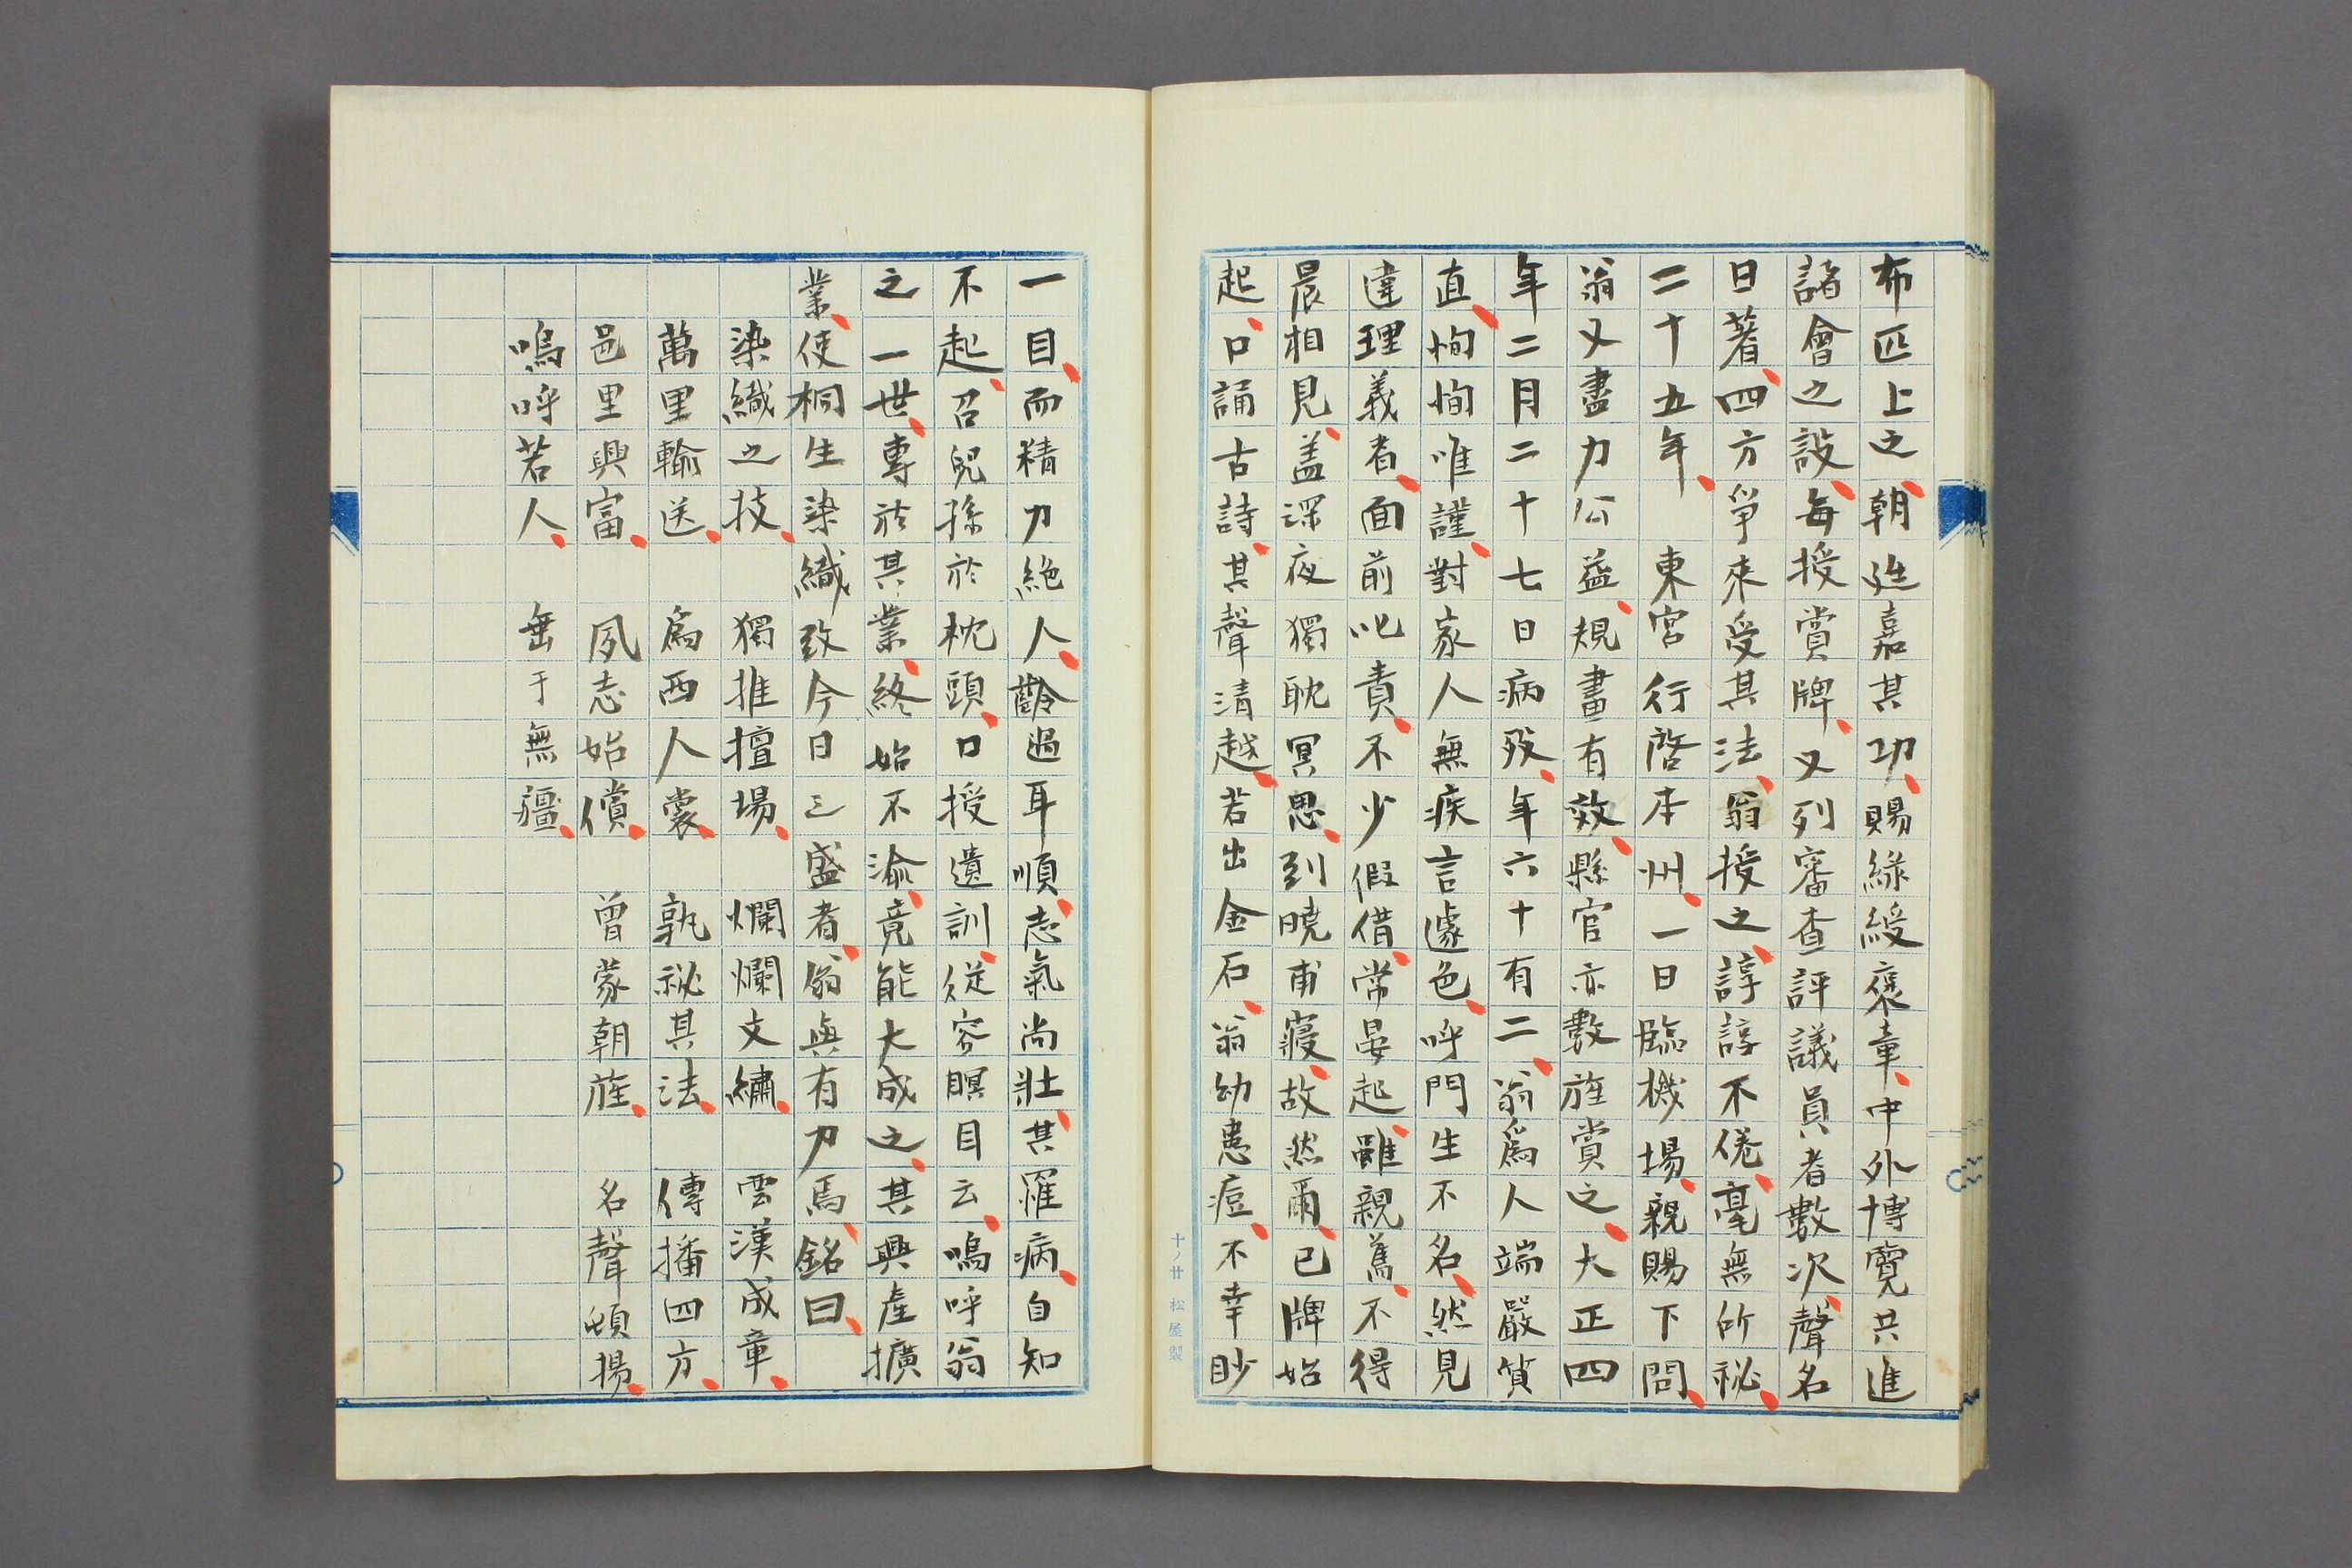 布匹上之朝廷嘉其功賜綠綬褒章中外博覽共進
諸會之設每授賞牌又列審查評議員者數次聲名
日著四方爭來受其法翁授之諄諄不倦毫無所祕
二十五年　東宮行啓本州一日臨機場親賜下問
翁又盡力公益規畫有效縣官亦數旌賞之大正四
年二月二十七日病歿年六十有二翁爲人端嚴質
直恂恂唯謹對家人無疾言遽色呼門生不名然見
違理義者面前叱責不少假借常晏起雖親舊不得
晨相見盖深夜獨耽冥思到曉甫寢故然爾已牌始
起口誦古詩其聲清越若出金石翁幼患痘不幸眇
一目而精力絶人齡過耳順志氣尚壯其罹病自知
不起召兒孫於枕頭口授遺訓從容瞑目云嗚呼翁
之一世專於其業終始不渝竟能大成之其興產擴
業使桐生染織致今日之盛者翁與有力焉銘曰
染織之技　獨推擅場　爛爛文繡　雲漢成章
萬里輸送　爲西人裳　孰祕其法　傳播四方
邑里興富　夙志始償　曾蒙朝旌　名聲頓揚
嗚呼若人　垂于無疆
十ノ廿　松屋製